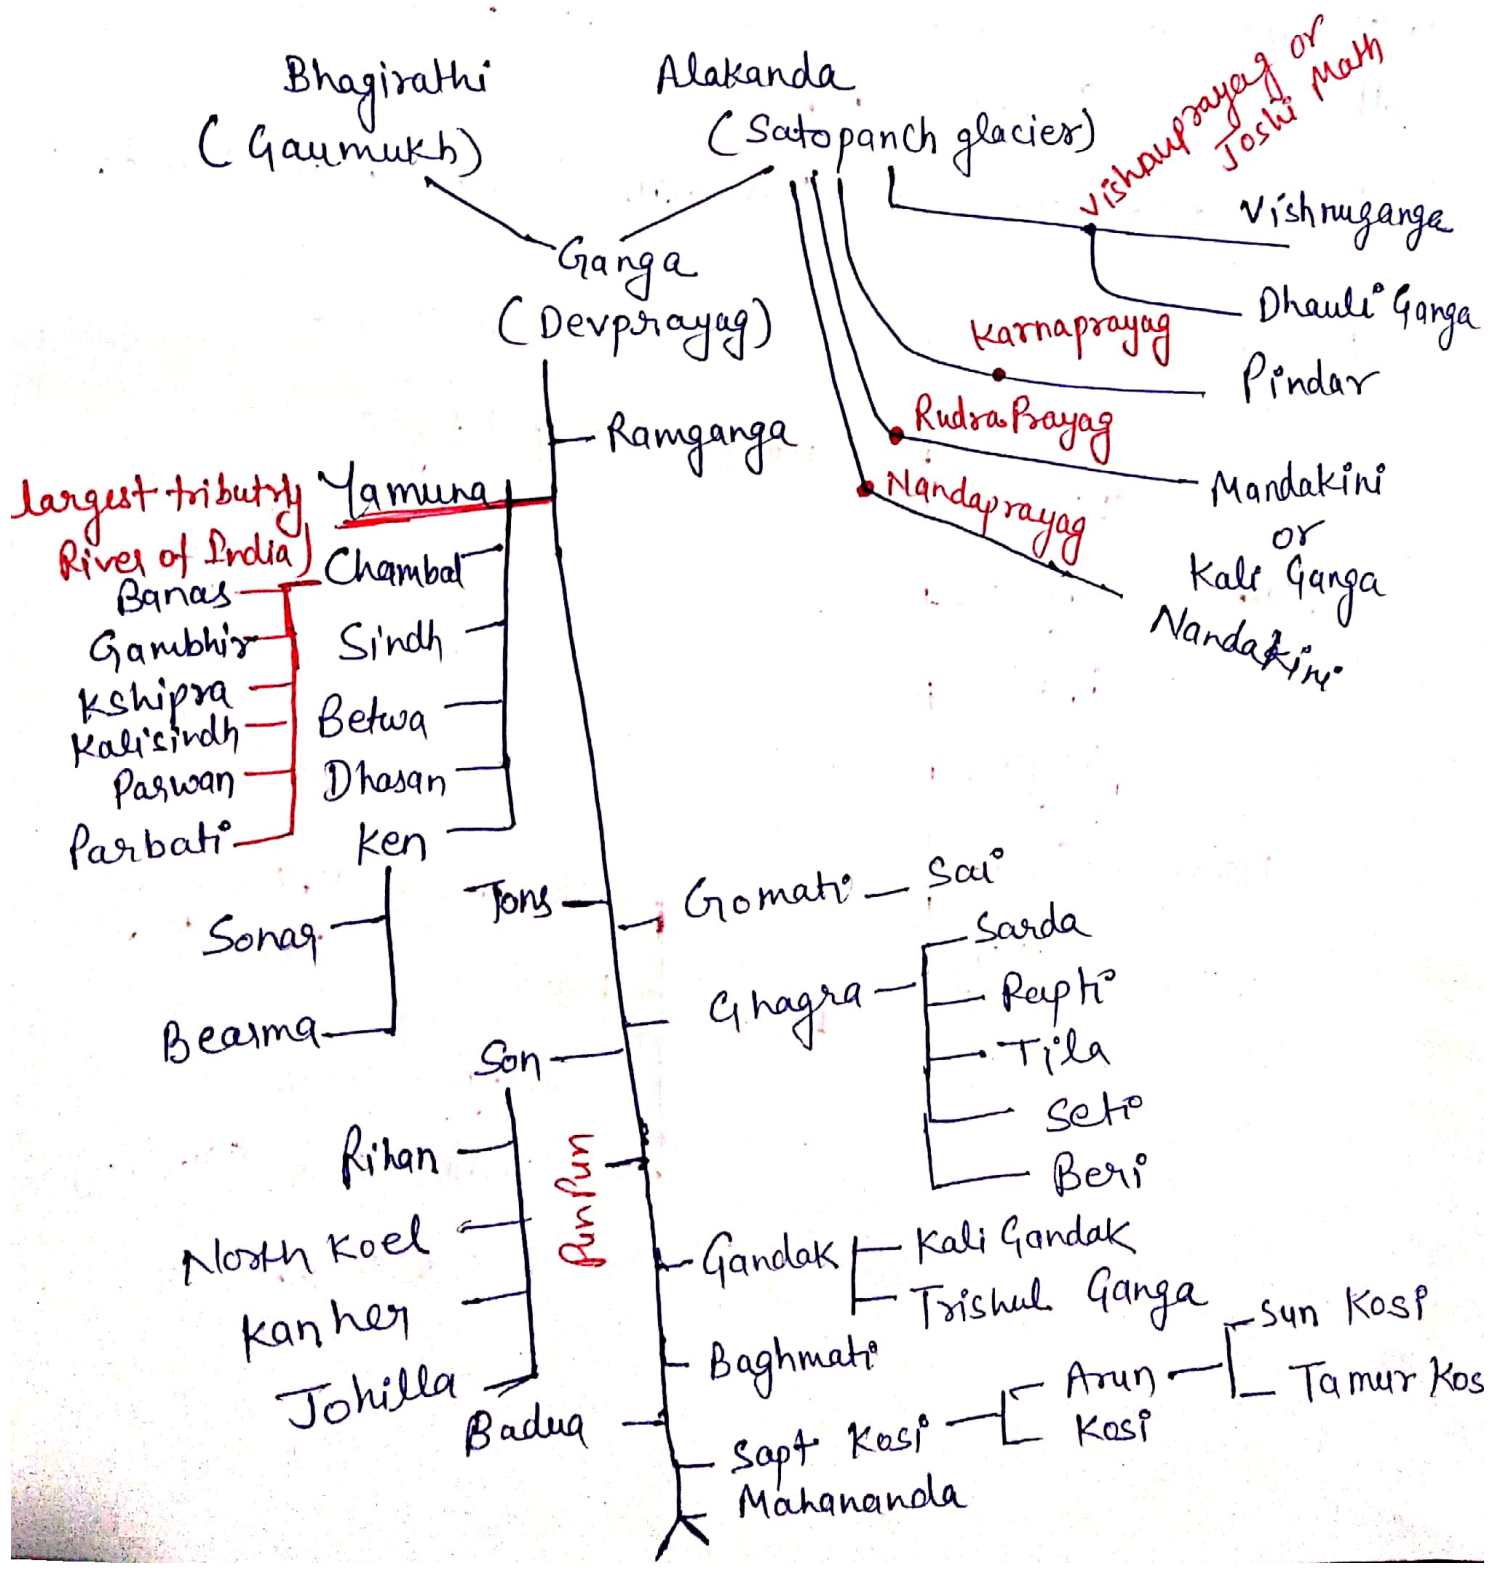 Bhagirathi
(Gaumukh)
Alakanda
(Satopanch glacier)
Vishnuprayag or
Joshi Math
Vishnuganga
Dhauli Ganga
Ganga
(Devprayag)
Karnaprayag
Pindar
Ramganga
RudraPrayag
Mandakini
or
Kali Ganga
Nandaprayag
Nandakini
largest tributry
River of India)
Yamuna
Chambal
Banas
Gambhir
Kshipra
Kalisindh
Parwan
Parbati
Sindh
Betwa
Dhasan
Ken
Sonar
Bearma
Tons
Gomati
Sai
Ghagra
Sarda
Rapti
Tila
Seti
Beri
Son
Rihan
North Koel
Kanher
Johilla
PunPun
Gandak
Kali Gandak
Trishul Ganga
Baghmati
Badua
Sapt Kosi
Arun
Kosi
Sun Kosi
Tamur Kos
Mahananda